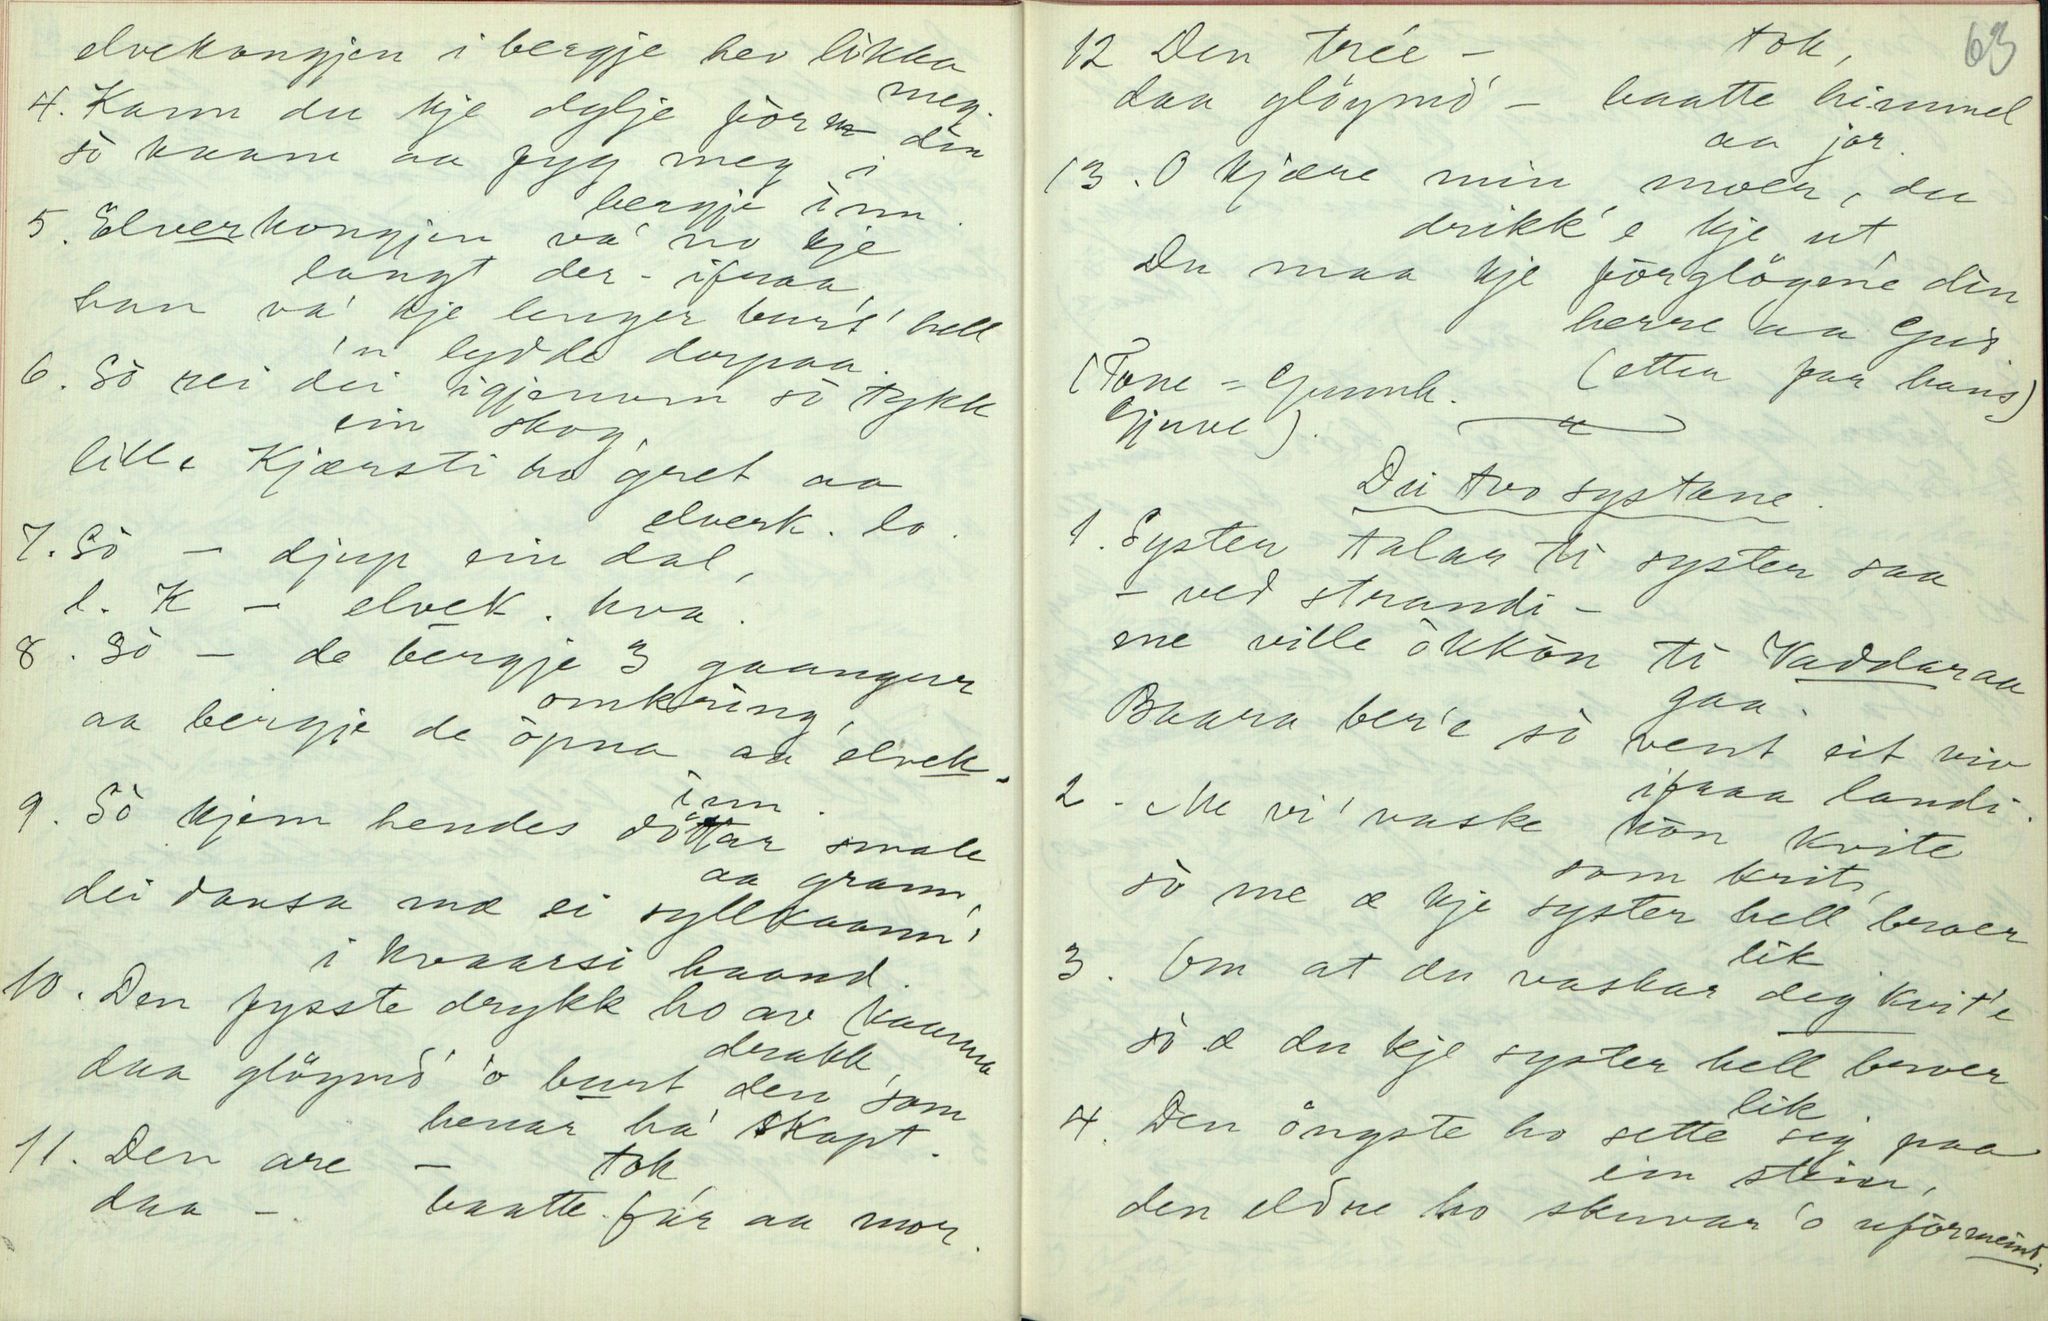 elvekongjen i bergje hev likka
meg.
4. Kann du kje dylje för m din
sò kaane aa fyg meg i
bergje inn.
5. Elverkongjen va' no kje
langt der-ifraa,
han va' kje lenger burt' hell
'n lydde derpaa.
6. Sò rei dei igjenom sò tykk
ein skog,
lill'e Kjærsti ho gret aa
elverk. lo.
7. Sò — djup ein dal,
l. K — elvek. kva.
8. Sò — de bergje 3 gaanguur
omkring,
aa bergje de òpna aa elvek.
inn.
9. Sò kjem hendes döttar smale
aa grann,
dei dansa mæ ei syllkaann'
i kvaarsi haand.
10. Den fysste drykk ho av kaanna
drakk,
daa glöymd' 'o burt den som
henar ha' skapt.
11. Den are — tok
daa — baatte far aa mor.
63
12 Den trée — tok,
daa glöymd' — baatte himmel
aa jor.
13. O kjære min moer, du
drikk'e kje ut,
Du maa kje förglöyme din
herre aa Gud
(Tone = Gunnh. (etter far hans)
Gjuve).
Dei tvo systane.
1. Syster talar ti syster saa
– ved strandi –
me ville òkkòn ti Vaddaraa
gaa.
Baara ber'e sò vent eit viv
ifraa landi.
2. Me vi' vaske kòn kvite
som krit,
sò me æ kje syster hell broer
lik
3. Om at du vaskar deg kvit'e
sò æ du kje syster hell broer
lik
4. Den öngste ho sette seg paa
ein stein,
den eldre ho skuvar 'o uförmeint.